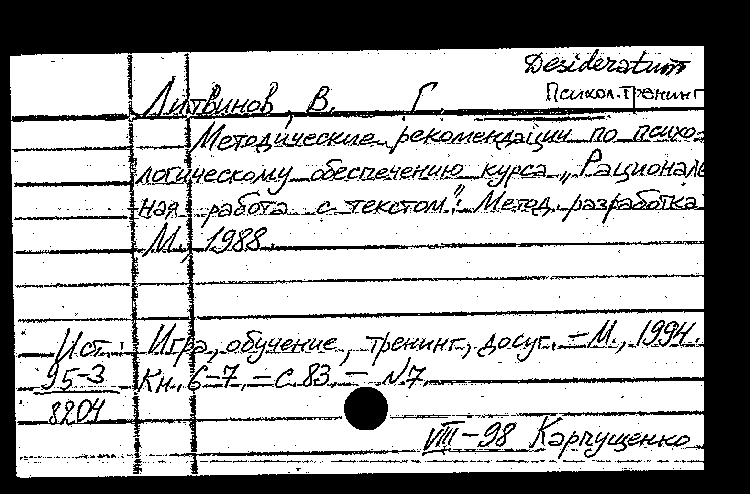 Desideratum
Психол. тренинг
Литвинов, В. Г.
Методические рекомендации по психо-
логическому обеспечению курса „Рациональ
ная работа с текстом": Метод. разработка
М., 1988.
Ист.: Игра, обучение, тренинг, досуг. – М., 1994.
95-3 Кн. 6-7. – С. 83. – №7.
8204
VIII-98 Карпущенко